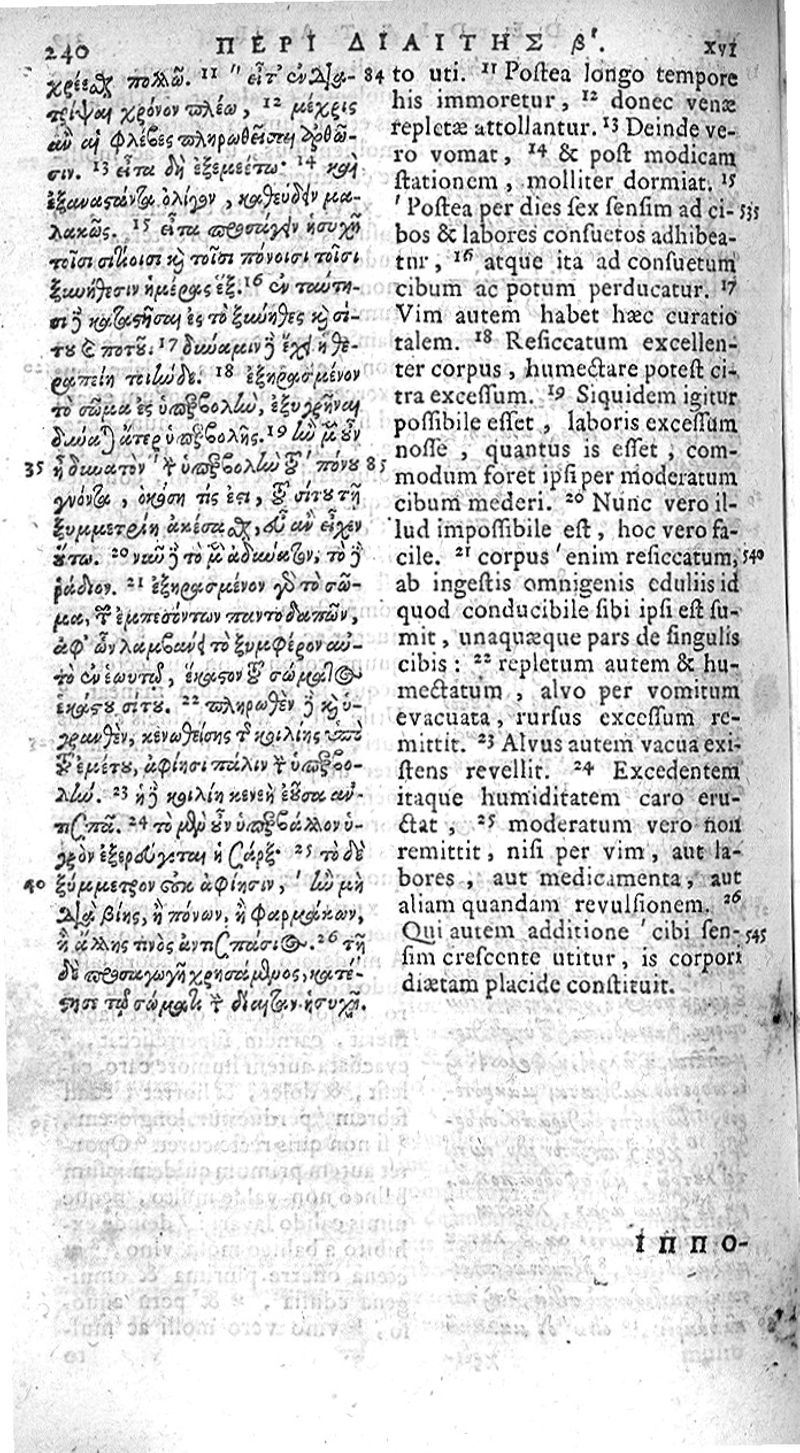 240 ΠΕΡΙ ΔΙΑΙΤΗΣ β'. XVI
χρέεσθαι πολλῷ. 11 " εἶτ' ἐνδια- 84
τρίψαι χρόνον πλέω, 12 μέχρις
ἂν αἱ φλέβες πληρωθεῖσαι ὀρθῶ-
σιν. 13 εἶτα δὴ ἐξεμεέτω· 14 καὶ
ἐξαναστάντα ὀλίγον, καθεύδειν μα-
λακῶς. 15 εἶτα προσάγειν ἡσυχῇ
τοῖσι σίτοισι καὶ τοῖσι πόνοισι τοῖσι
ξυνήθεσιν ἡμέρας ἕξ. 16 ἐν ταύτῃ-
σι δὲ καταστῆσαι ἐς τὸ ξύνηθες καὶ σί-
του καὶ ποτοῦ. 17 δύναμιν δὲ ἔχει ἡ θε-
ραπείη τοιήνδε. 18 ἐξηρασμένον
τὸ σῶμα ἐς ὑπερβολὴν, ἐξυγρῆναι
δύναται ἄτερ ὑπερβολῆς. 19 ἢν μὲν οὖν
35 ἦ δυνατὸν ' τὴν ὑπερβολὴν τοῦ πόνου 85
γνόντα, ὁκόση τίς ἐστι, τοῦ σίτου τῇ
ξυμμετρίῃ ἀκέσασθαι, εὖ ἂν εἶχεν
οὕτω. 20 νῦν δὲ τὸ μὲν ἀδύνατον, τὸ δὲ
ῥᾴδιον. 21 ἐξηρασμένον γὰρ τὸ σῶ-
μα, τῶν ἐμπεσόντων παντοδαπῶν,
ἀφ' ὧν λαμβάνει τὸ ξυμφέρον αὐ-
τὸ ἐν ἑωυτῷ, ἕκαστον τοῦ σώματος
ἑκάστου σίτου. 22 πληρωθὲν δὲ καὶ ὑ-
γρανθὲν, κενωθείσης τῆς κοιλίης ὑπὸ
τοῦ ἐμέτου, ἀφίησι πάλιν τὴν ὑπερβο-
λήν. 23 ἡ δὲ κοιλίη κενεὴ ἐοῦσα ἀν-
τισπᾷ. 24 τὸ μὲν οὖν ὑπερβάλλον ὑ-
γρὸν ἐξερεύγεται ἡ σάρξ· 25 τὸ δὲ
40 ξύμμετρον οὐκ ἀφίησιν, ' ἢν μὴ
διὰ βίης, ἢ πόνων, ἢ φαρμάκων,
ἢ ἄλλης τινὸς ἀντισπάσιος. 26 τῇ
δὲ προσαγωγῇ χρησάμενος, κατέ-
στησε τῷ σώματι τὴν δίαιταν ἡσυχῇ.
to uti. 11 Postea longo tempore
his immoretur, 12 donec venæ
repletæ attollantur. 13 Deinde ve-
ro vomat, 14 & post modicam
stationem, molliter dormiat. 15
' Postea per dies sex sensim ad ci- 535
bos & labores consuetos adhibea-
tur, 16 atque ita ad consuetum
cibum ac potum perducatur. 17
Vim autem habet hæc curatio
talem. 18 Resiccatum excellen-
ter corpus, humectare potest ci-
tra excessum. 19 Siquidem igitur
possibile esset, laboris excessum
nosse, quantus is esset, com-
modum foret ipsi per moderatum
cibum mederi. 20 Nunc vero il-
lud impossibile est, hoc vero fa-
cile. 21 corpus ' enim resiccatum, 540
ab ingestis omnigenis eduliis id
quod conducibile sibi ipsi est su-
mit, unaquæque pars de singulis
cibis: 22 repletum autem & hu-
mectatum, alvo per vomitum
evacuata, rursus excessum re-
mittit. 23 Alvus autem vacua exi-
stens revellit. 24 Excedentem
itaque humiditatem caro eru-
ctat, 25 moderatum vero non
remittit, nisi per vim, aut la-
bores, aut medicamenta, aut
aliam quandam revulsionem. 26
Qui autem additione ' cibi sen- 545
sim crescente utitur, is corpori
diætam placide constituit.
ΙΠΠΟ-